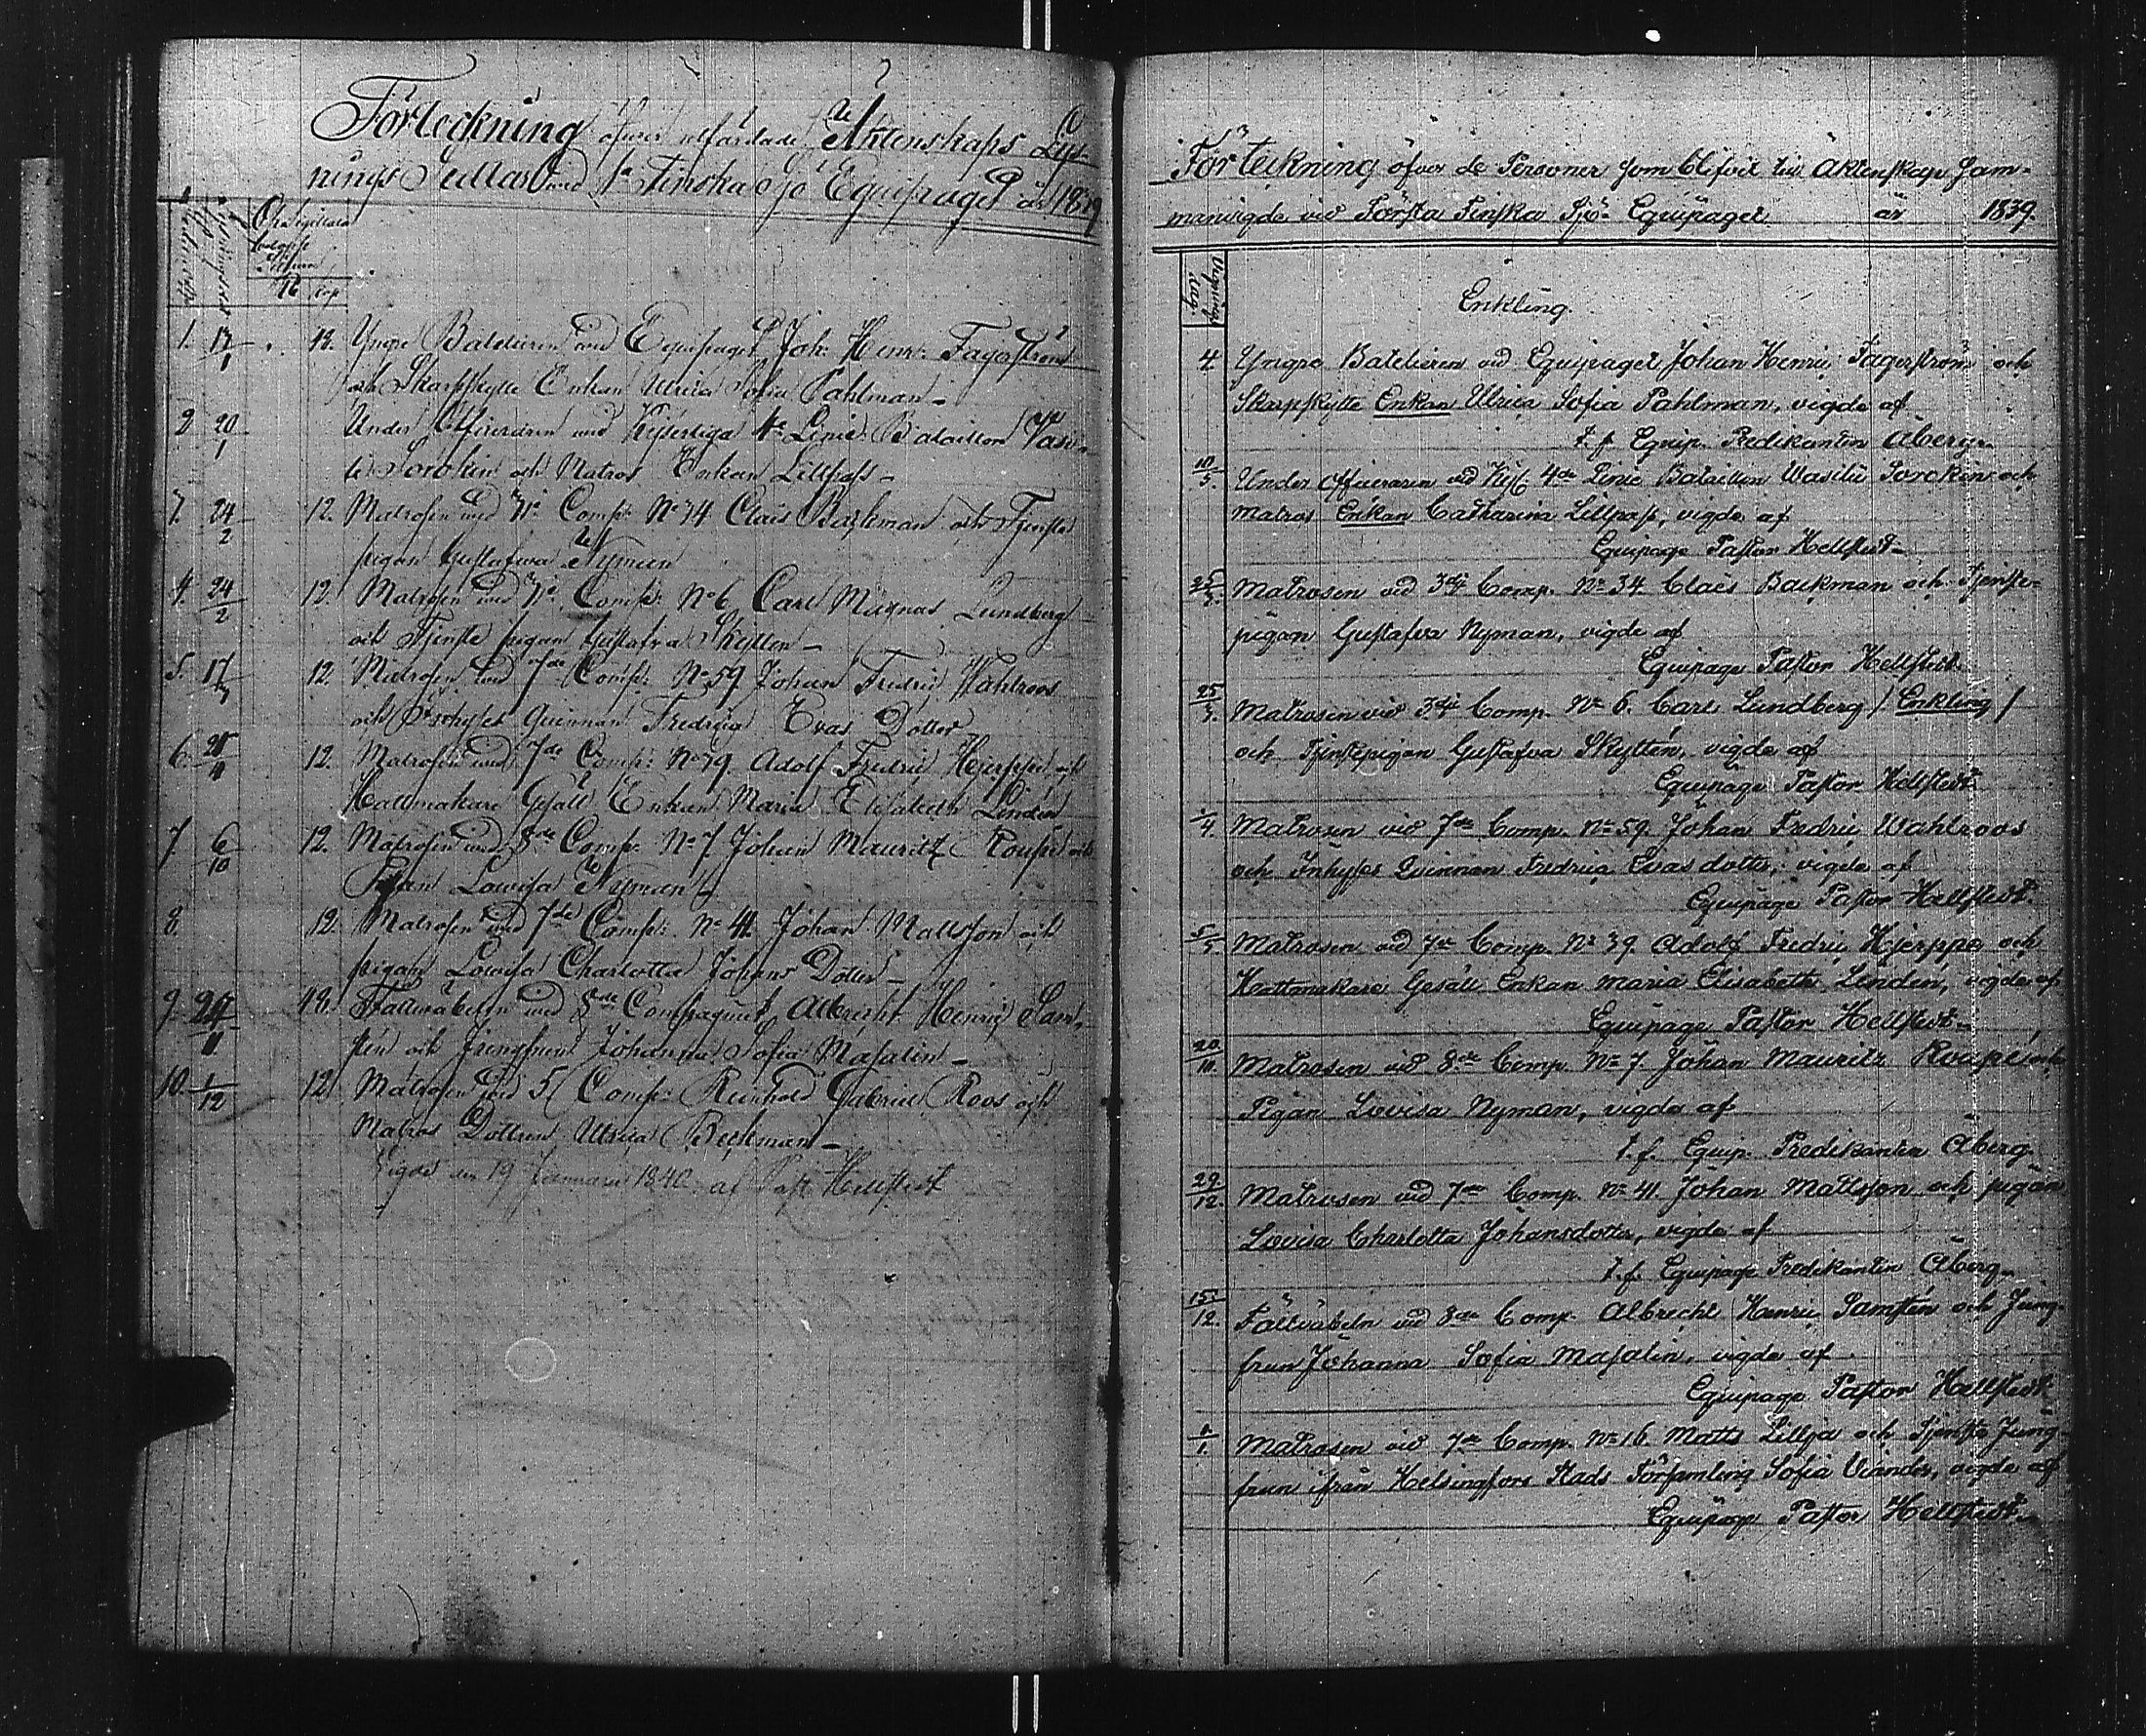 Förteckning öfver utfärdade Äktenskaps Lys-
nings Sedlar vid 1a Finska Sjö Equipaget år 1839
No Cop
1. 13/1 12. Yngre Batelieren vid Equipaget Joh: Henr: Fagerström
och Skarpskytte Enkan Ulrica Sofia Pahlman –
2 20/1 Under Officeraren vid Kejserliga 4de Linie Bataillon Vasi-
li Sorokin och Matros Enkan Lillpass –
3. 24/2 12. Matrosen vid 3dje Comp: No 34 Claës Backman och Tjenste
pigan Gustafva Nyman
4. 24/2 12. Matrosen vid 3dje Comp: No 6 Carl Magnus Lundberg
och Tjenste pigan Gustafva Skytten –
5. 17/3 12. Matrosen vid 7de Comp: No 59 Johan Fredric Wahlroos
och Inhyses Quinnan Fredrica Evas Dotter
6. /4 12. Matrosen vid 7de Comp: No 39. Adolf Fredric Hjerppe och
Hattmakare Gesäll Enkan Maria Elisabeth Lindén
7. 6/10 12. Matrosen vid 8de Comp: No 7. Johan Mauritz Roupé och
Pigan Lowisa Nyman –
8. 12. Matrosen vid 7de Comp: No 41. Johan Mattsson och
pigan Lowisa Charlotta Johans Dotter –
9. /11 12. Fältväbeln vid 8de Compagniet Albrecht Henric Sam-
stén och Jungfrun Johanna Sofia Masalin –
10. 1/12 12. Matrosen vid 5 Comp: Reinhold Gabriel Roos och
Matros Dottren Ulrica Beckman –
Vigde den 19 Januarii 1840 af Past Hellstedt
Förteckning öfver de Personer som blifvit till Äktenskap Sam-
manvigde vid Första Finska Sjö-Equipaget år 1839.
Vignings dag.
Enkling.
4 Yngre Batelieren vid Equipaget Johan Henric Fagerström och
Skarpskytte Enkan Ulrica Sofia Pahlman, vigde af
t. f. Equip. Predikanten Åberg.
10/5. Under officeraren vid Kejs. 4de Linie Bataillon Wasilii Sorokin och
matros Enkan Catharina Lillpass, vigde af
Equipage Pastor Hellstedt.
25/3. Matrosen vid 3dje Comp. No 34. Claës Backman och Tjenste-
pigan Gustafva Nyman, vigde af
Equipage Pastor Hellstedt.
25/3. Matrosen vid 3dje Comp. No 6. Carl Lundberg / Enkling /
och Tjenstepigan Gustafva Skyttén, vigde af
Equipage Pastor Hellstedt.
1/4. Matrosen vid 7de Comp. No 59. Johan Fredric Wahlroos
och Inhyses Quinnan Fredrica Evasdotter, vigde af
Equipage Pastor Hellstedt.
5/5 Matrosen vid 7de Comp. No 39. Adolf Fredric Hjerppe och
Hattmakare Gesäll Enkan Maria Elisabeth Lindén, vigde af
Equipage Pastor Hellstedt.
20/10. Matrosen vid 8de Comp. No 7. Johan Mauritz Roupé och
Pigan Lovisa Nyman, vigde af
t. f. Equip. Predikanten Åberg.
29/12. Matrosen vid 7de Comp. No 41. Johan Mattsson och pigan
Lovisa Charlotta Johansdotter, vigde af
t. f. Equipage Predikanten Åberg.
15/12. Fältväbeln vid 8de Comp. Albrecht Henric Samstén och Jung-
frun Johanna Sofia Masalin, vigde af
Equipage Pastor Hellstedt
1/1. Matrosen vid 7de Comp. No 16. Matts Lillja och Tjenste Jung-
frun ifrån Helsingfors Stads Församling Sofia Viander, vigde af
Equipage Pastor Hellstedt.